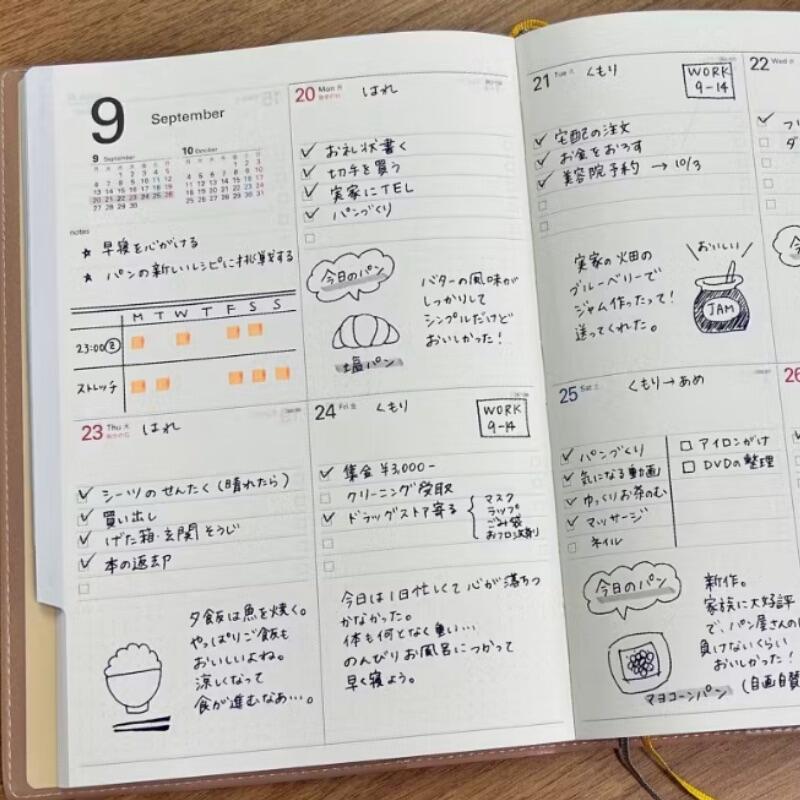 9
September
9 September
月 火 水 木 金 土 日
1 2 3 4 5
6 7 8 9 10 11 12
13 14 15 16 17 18 19
20 21 22 23 24 25 26
27 28 29 30
10 October
notes
★ 早寝を心がける
★ パンの新しいレシピに挑戦する
M T W T F S S
23:00
ストレッチ
20 Mon 月 はれ
敬老の日
✓ お礼状書く
✓ 切手を買う
✓ 実家にTEL
✓ パンづくり
今日のパン
塩パン
バターの風味が
しっかりして
シンプルだけど
おいしかった!
21 Tue 火 くもり
WORK
9-14
✓ 宅配の注文
✓ お金をおろす
✓ 美容院予約 → 10/3
実家の畑の
ブルーベリーで
ジャム作ったって!
送ってくれた。
\おいしい/
JAM
22 Wed 水
23 Thu 木 はれ
秋分の日
✓ シーツのせんたく(晴れたら)
✓ 買い出し
✓ げた箱・玄関そうじ
✓ 本の返却
夕飯は魚を焼く。
やっぱりご飯も
おいしいよね。
涼しくなって
食が進むなあ…。
24 Fri 金 くもり
WORK
9-14
✓ 集金 ¥3,000-
クリーニング受取
✓ ドラッグストア寄る
マスク
ラップ
ごみ袋
おフロ洗剤
今日は1日忙しくて心が落ちつ
かなかった。
体も何となく重い…
のんびりお風呂につかって
早く寝よう。
25 Sat 土 くもり→あめ
✓ パンづくり
✓ 気になる動画
✓ ゆっくりお茶のむ
✓ マッサージ
ネイル
□ アイロンがけ
□ DVDの整理
今日のパン
マヨコーンパン
新作。
家族に大好評
で、パン屋さんの
負けないくらい
おいしかった!
(自画自賛
26